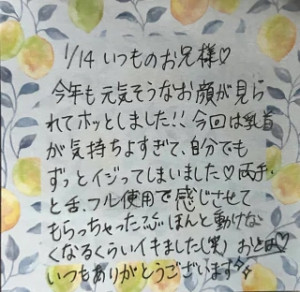 1/14 いつものお兄様♡
今年も元気そうなお顔が見ら
れてホッとしました!! 今回は乳首
が気持ちよすぎて、自分でも
ずっとイジってしまいました♡両手
と舌、フル使用で感じさせて
もらっちゃった ほんと動けな
くなるくらいイキました(笑)
いつもありがとうございます